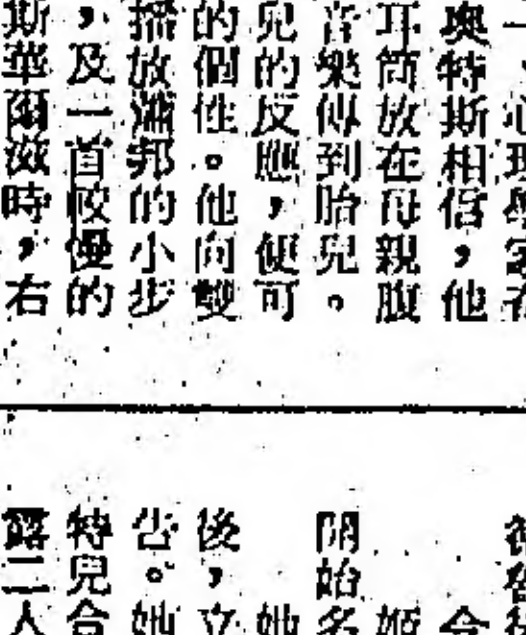 一、心理學家
奧特斯相信，他
耳筒放在母親腹
音樂傳到胎兒。
兒的反應，便可
的個性。他向雙
播放瀟邦的小步
，及一首較慢的
斯華爾滋時，右
合
姬
開始名
她
後，立
告。她
特兒合
露二人